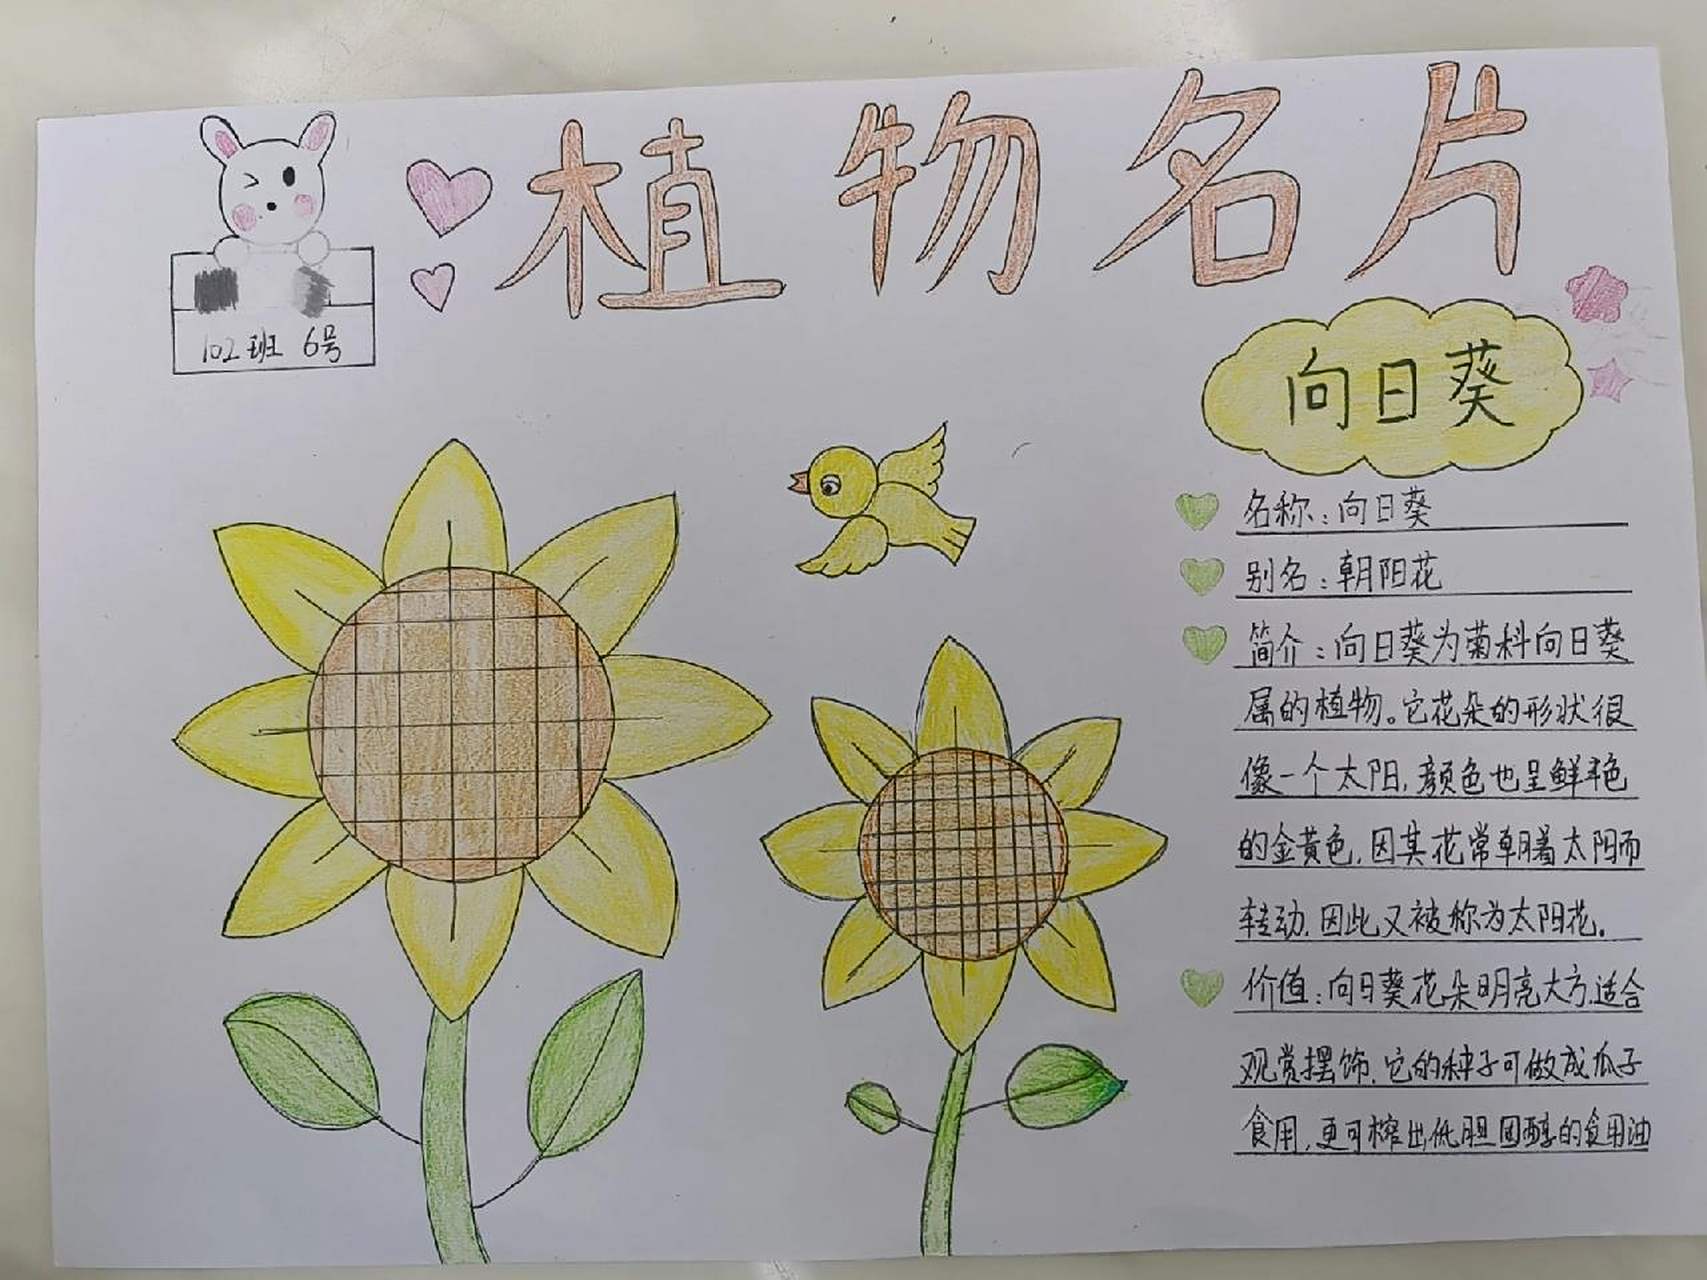 植物名片
102班 6号
向日葵
名称:向日葵
别名:朝阳花
简介:向日葵为菊科向日葵
属的植物。它花朵的形状很
像一个太阳,颜色也呈鲜艳色
的金黄色,因其花常朝着太阳而
转动,因此又被称为太阳花.
价值:向日葵花朵明亮大方,适合
观赏摆饰,它的种子可做成瓜子
食用,更可榨出低胆固醇的食用油